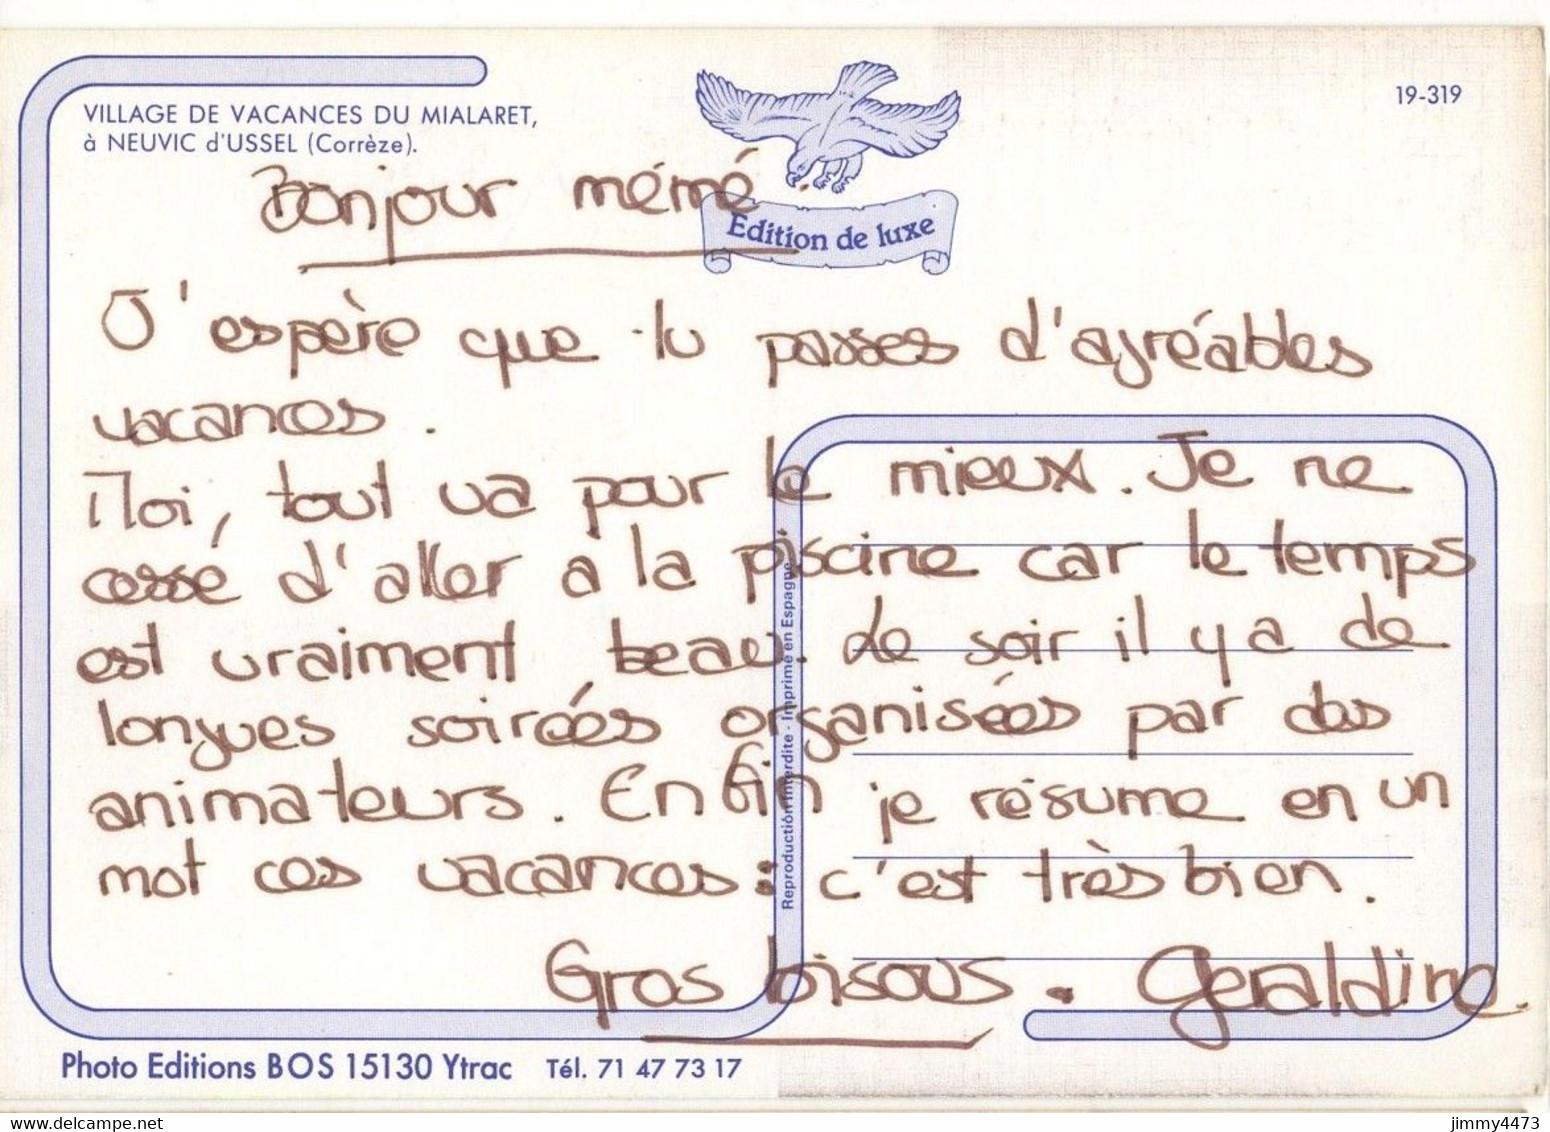 VILLAGE DE VACANCES DU MIALARET,
à NEUVIC d'USSEL (Corrèze).
19-319
Edition de luxe
Bonjour mémé.
J'espère que tu passes d'agréables
vacances.
Moi, tout va pour le mieux. Je ne
cesse d'aller à la piscine car le temps
est vraiment beau. Le soir il y a de
longues soirées organisées par des
animateurs. Enfin je résume en un
mot ces vacances : c'est très bien.
Gros bisous. Geraldine.
Reproduction Interdite - Imprimé en Espagne
Photo Editions BOS 15130 Ytrac Tél. 71 47 73 17
jimmy4473